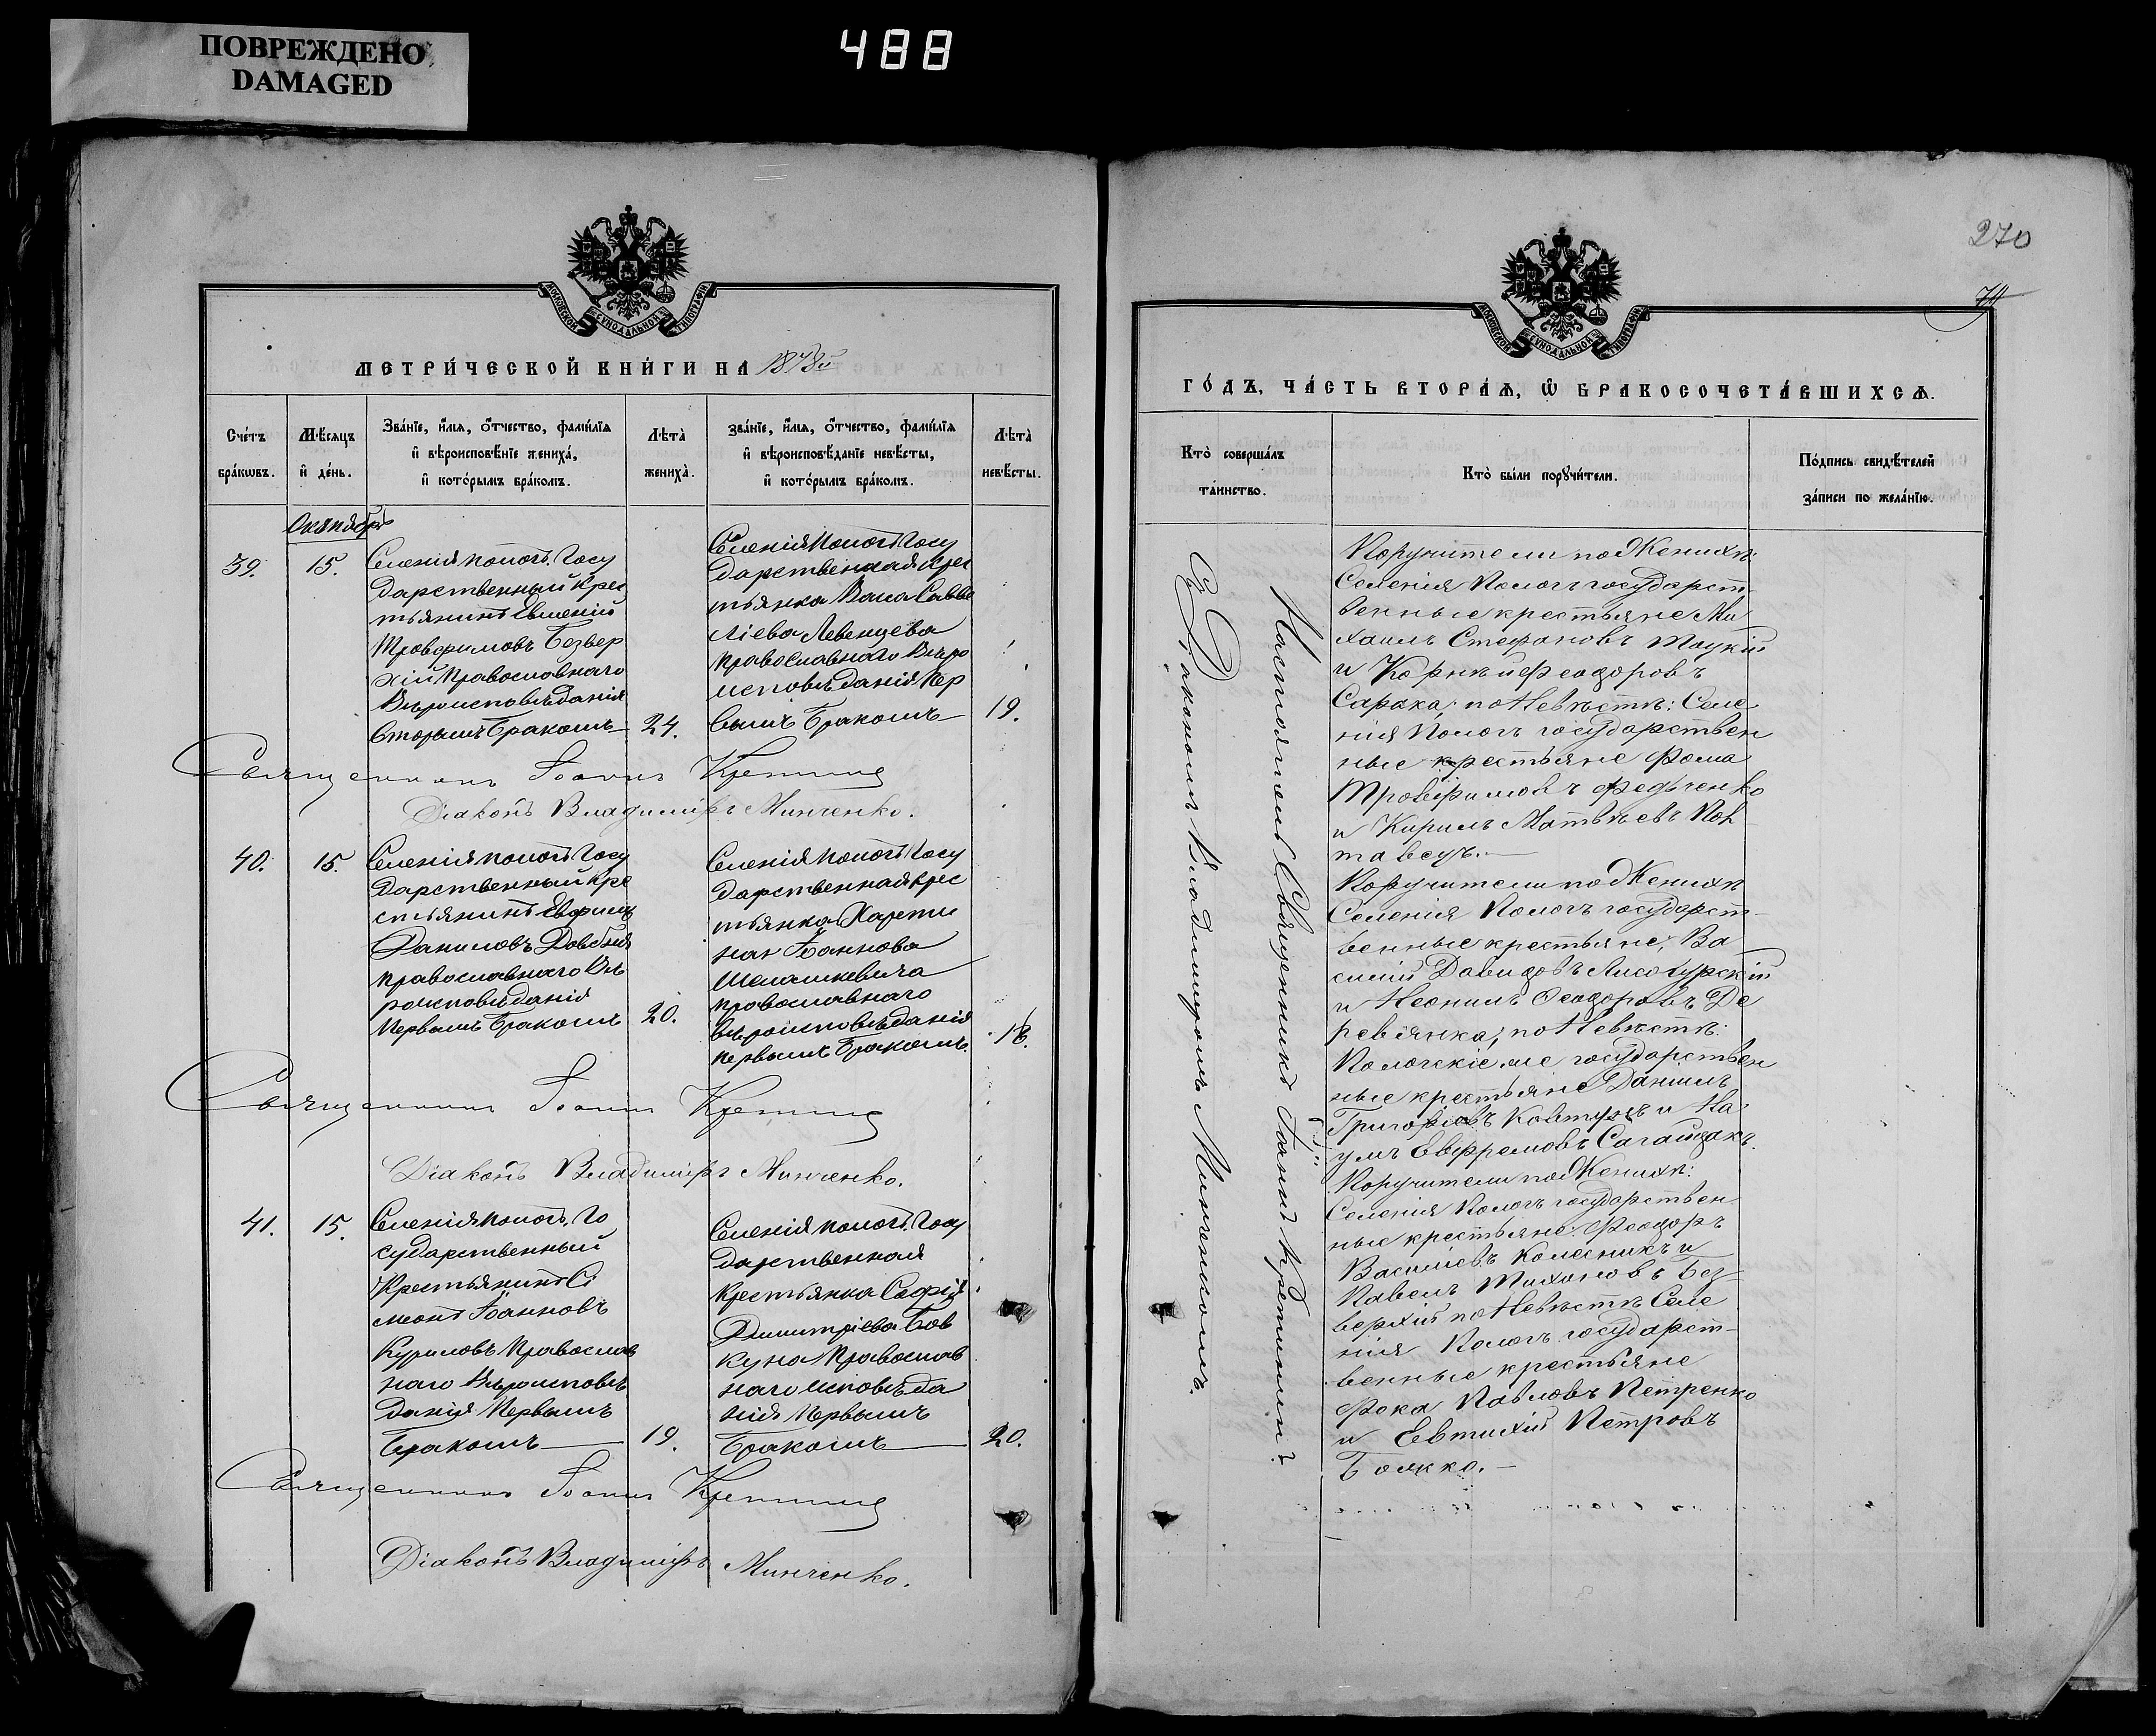 ПОВРЕЖДЕНО
DAMAGED
488
МОСКОВСКОЙ СѴНОДАЛЬНОЙ ТИПОГРАФІИ
МЕТРИ́ЧЕСКОЙ КНИ́ГИ НА 1878й
Сче́тъ
бра́кѡвъ.
Мѣ́сяцъ
и҆ де́нь.
Зва́нїе, и҆́мѧ, ѻ҆́тчество, фами́лїѧ
и҆ вѣроисповѣ́нїе жениха̀,
и҆ кото́рымъ бра́комъ.
Лѣта̀
жениха̀.
зва́нїе, и҆́мѧ, ѻ҆́тчество, фами́лїѧ
и҆ вѣроисповѣ́данїе невѣ́сты,
и҆ кото́рымъ бра́комъ.
Лѣта̀
невѣ́сты.
Октябрь
39.
15.
Селенія Пологъ Госу
дарственный крес
тьянинъ Евменій
Трофимовъ Безвер
хій Православнаго
Вѣроисповѣданія
вторымъ Бракомъ
24.
Селенія Пологъ Госу
дарственная крес
тьянка Савве
Левенцева
Православнаго Вѣро
исповѣданія Пер
вымъ Бракомъ
19.
Священникъ Іоаннъ
Діаконъ Владиміръ Минченко.
40.
15.
Селенія Пологъ Госу
дарственный кре
стьянинъ Евфимъ
Даниловъ Довбня
православнаго Вѣ
роисповѣданія
Первымъ Бракомъ
20.
Селенія Пологъ Госу
дарственная крес
тьянка Харити
на Іоаннова
Шелашкевича
православнаго
вѣроисповѣданія
первымъ Бракомъ.
18.
Священникъ Іоаннъ
Діаконъ Владиміръ Минченко.
41.
15.
Селенія Пологъ Го
сударственный
Крестьянинъ Си
меонъ Іоанновъ
Куриловъ Православ
наго Вѣроисповѣ
данія Первымъ
Бракомъ
19.
Селенія Пологъ Госу
дарственная
Крестьянка Софія
Димитріева Бов
куна Православ
наго исповѣда
нія Первымъ
Бракомъ
20.
Священникъ Іоаннъ
Діаконъ Владиміръ Минченко.
270
74
МОСКОВСКОЙ СѴНОДАЛЬНОЙ ТИПОГРАФІИ
ГО́ДЪ, ЧА́СТЬ ВТОРА́Ѧ, Ѡ҆ БРАКОСОЧЕТА́ВШИХСѦ.
Кто̀ соверша́лъ
та́инство.
Кто̀ бы́ли порꙋчи́тели.
По́дпись свидѣ́телей
за́писи по жела́нїю.
Настоятель Священникъ Іоаннъ
Съ Діакономъ Владиміромъ Минченкомъ.
Поручители по Женихѣ:
Селенія Пологъ государст
венные крестьяне Ми
хаилъ Стефановъ Тоцкій
и Корнѣй Феодоровъ
Сарака; по Невѣстѣ: Селе
нія Пологъ государствен
ные крестьяне Фома
Трофимовъ Федченко
и Кирилъ Матвѣевъ Пол
Поручители по Женихѣ
Селенія Пологъ государст-
венные крестьяне; Ва
силій Давидовъ Лисогурскій
и Неонилъ Феодоровъ Де
ревянка; по Невѣстѣ:
Пологскіе же государствен
ные крестьяне Даніилъ
Григорьевъ Ковтунъ и На
умъ Евфремовъ Сагайдакъ.
Поручители по Женихѣ:
Селенія Пологъ государствен
ные крестьяне: Феодоръ
Василіевъ Колесникъ и
Павелъ Тихоновъ Без
верхій по Невѣстѣ Селе
нія Пологъ государст-
венные крестьяне
Фока Павловъ Петренко
и Евтихій Петровъ
Божко.